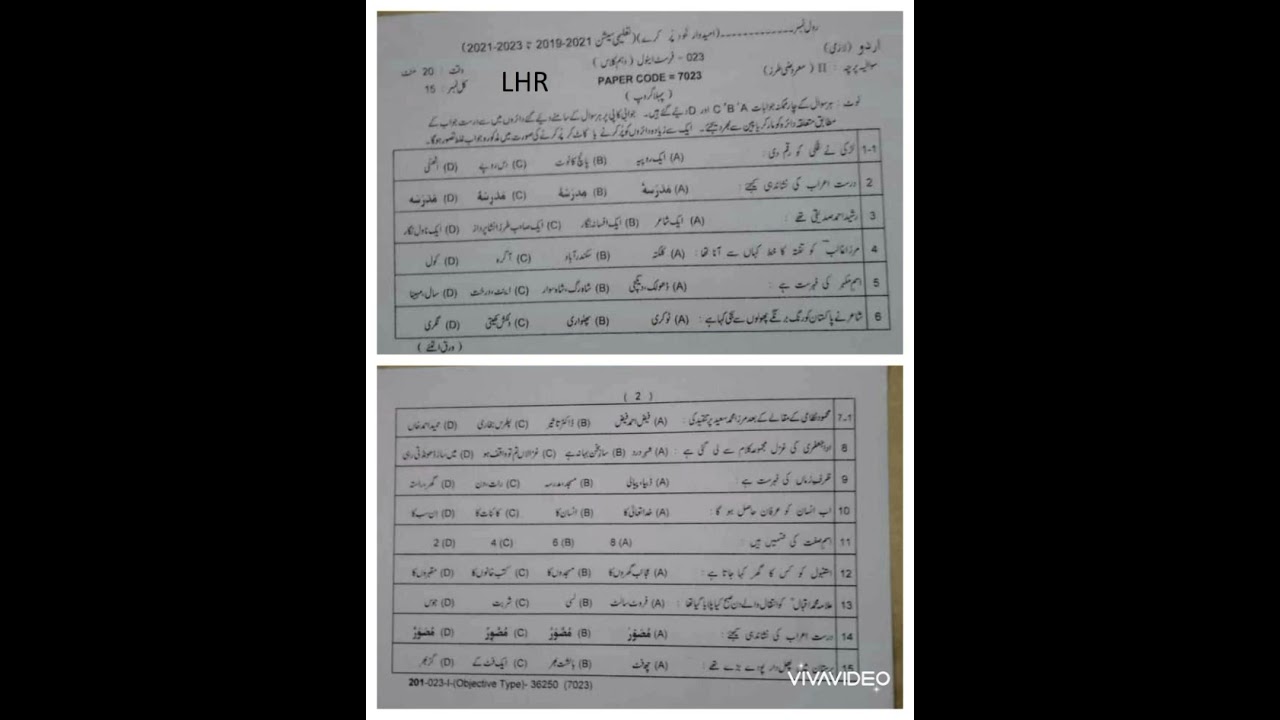 رول نمبر ------------ (امیدوار خود پر کرے) (تعلیمی سیشن 2021-2019 تا 2023-2021)
اردو (لازمی)
023 - فرسٹ اینول (دہم کلاس)
سوالیہ پرچہ : II (معروضی طرز)
PAPER CODE = 7023
وقت : 20 منٹ
LHR
(پہلا گروپ)
کل نمبر : 15
نوٹ : ہر سوال کے چار ممکنہ جوابات A ' B ' C اور D دیے گئے ہیں۔ جوابی کاپی پر ہر سوال کے سامنے دیے گئے دائروں میں سے درست جواب کے
مطابق متعلقہ دائرہ کو مارکر یا پین سے بھر دیجئے۔ ایک سے زیادہ دائروں کو پر کرنے یا کاٹ کر پر کرنے کی صورت میں مذکورہ جواب غلط تصور ہوگا۔
1-1 لڑکی نے قلی کو رقم دی : (A) ایک روپیہ (B) پانچ کا نوٹ (C) دس روپے (D) اٹھنی
2 درست اعراب کی نشاندہی کیجئے : (A) مدرسہ (B) مدرسہ (C) مدرسہ (D) مدرسہ
3 رشید احمد صدیقی تھے : (A) ایک شاعر (B) ایک افسانہ نگار (C) ایک صاحب طرز انشا پرداز (D) ایک ناول نگار
4 مرزا غالبؔ کو تفتہ کا خط کہاں سے آتا تھا : (A) کلکتہ (B) سکندرآباد (C) آگرہ (D) کول
5 اسم مکبر کی فہرست ہے : (A) ڈھولک، دیگچی (B) شاہ رگ، شاہ سوار (C) اینٹ، درخت (D) سال، مہینا
6 شاعر نے پاکستان کو رنگ برنگے پھولوں سے سجی کہا ہے : (A) ٹوکری (B) پھلواری (C) دلکش کھیتی (D) نگری
(ورق الٹئے)
( 2 )
7-1 محمود نظامی کے مقالے کے بعد مرزا محمد سعید پر تنقید کی : (A) فیض احمد فیض (B) ڈاکٹر تاثیر (C) پطرس بخاری (D) حمید احمد خاں
8 ادا جعفری کی غزل مجموعہ کلام سے لی گئی ہے : (A) شہر درد (B) ساز سخن بہانہ ہے (C) غزالاں تم تو واقف ہو (D) میں ساز ڈھونڈتی رہی
9 ظرف زماں کی فہرست ہے : (A) ڈبیا، پیالی (B) مسجد، مدرسہ (C) رات، دن (D) گھر، راستہ
10 اب انسان کو عرفان حاصل ہو گا : (A) خدا تعالیٰ کا (B) انسان کا (C) کائنات کا (D) ان سب کا
11 اسم صفت کی قسمیں ہیں : (A) 8 (B) 6 (C) 4 (D) 2
12 استنبول کو کس کا گھر کہا جاتا ہے : (A) عجائب گھروں کا (B) مسجدوں کا (C) کتب خانوں کا (D) مقبروں کا
13 علامہ محمد اقبالؒ کو انتقال والے دن صبح کیا پلایا گیا تھا : (A) فروٹ سالٹ (B) لسی (C) شربت (D) جوس
14 درست اعراب کی نشاندہی کیجئے : (A) مصور (B) مصور (C) مصور (D) مصور
15 پورے بڑے تھے : (A) چھ فٹ (B) بالشت بھر (C) ایک فٹ کے (D) گز بھر
201-023-I-(Objective Type)- 36250 (7023)
VIVAVIDEO